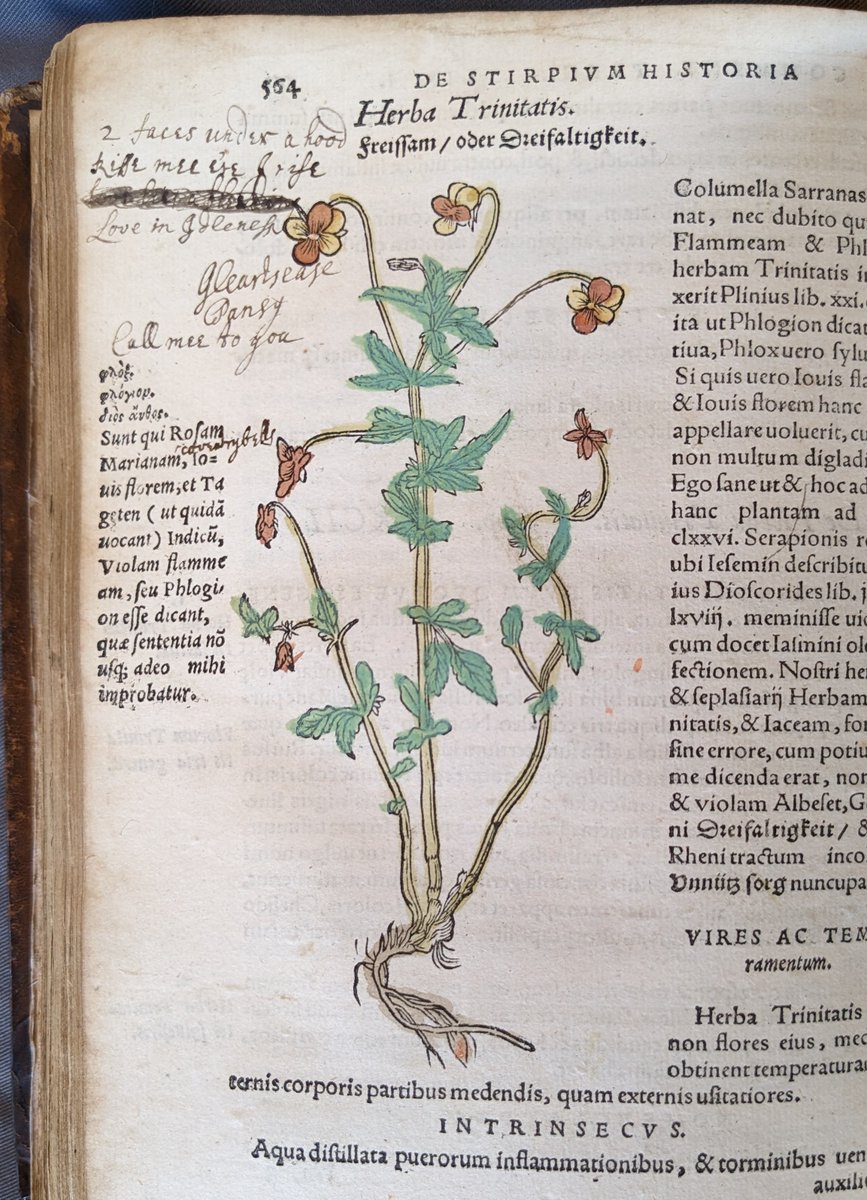 564
DE STIRPIVM HISTORIA
Herba Trinitatis.
Freissam / oder Dreifaltigkeit.
2 faces under a hood
Kisse mee ere I rise
Love in Idleness
Heartsease
Pansy
Call mee to you
φλόξ.
φλόγιον.
διὸς ἄνθος.
Sunt qui Rosam
coventrybells
Marianam, Io-
uis florem, et Ta
geten (ut quidã
uocant) Indicũ,
Violam flamme
am, seu Phlogi-
on esse dicant,
quæ sententia nõ
usq; adeo mihi
improbatur.
Columella Sarranas
nat, nec dubito qu
Flammeam & Phl
herbam Trinitatis i
xerit Plinius lib. xxi.
ita ut Phlogion dica
tiua, Phlox uero sylu
Si quis uero Iouis fla
& Iouis florem hanc
appellare uoluerit, cu
non multum digladi
Ego sane ut & hoc ad
hanc plantam ad
clxxvi. Serapionis r
ubi Iesemin describitu
ius Dioscorides lib. j
lxviij. meminisse uid
cum docet Iasmini ole
fectionem. Nostri he
& seplasiarij Herbam
nitatis, & Iaceam, for
sine errore, cum potiu
me dicenda erat, non
& violam Albeset, G
ni Dreifaltigkeit / &
Rheni tractum inco
Vnnütz sorg nuncupa
VIRES AC TEM
ramentum.
Herba Trinitatis
non flores eius, med
obtinent temperatura
ternis corporis partibus medendis, quam externis usitatiores.
INTRINSECVS.
Aqua distillata puerorum inflammationibus, & torminibus uen
auxili